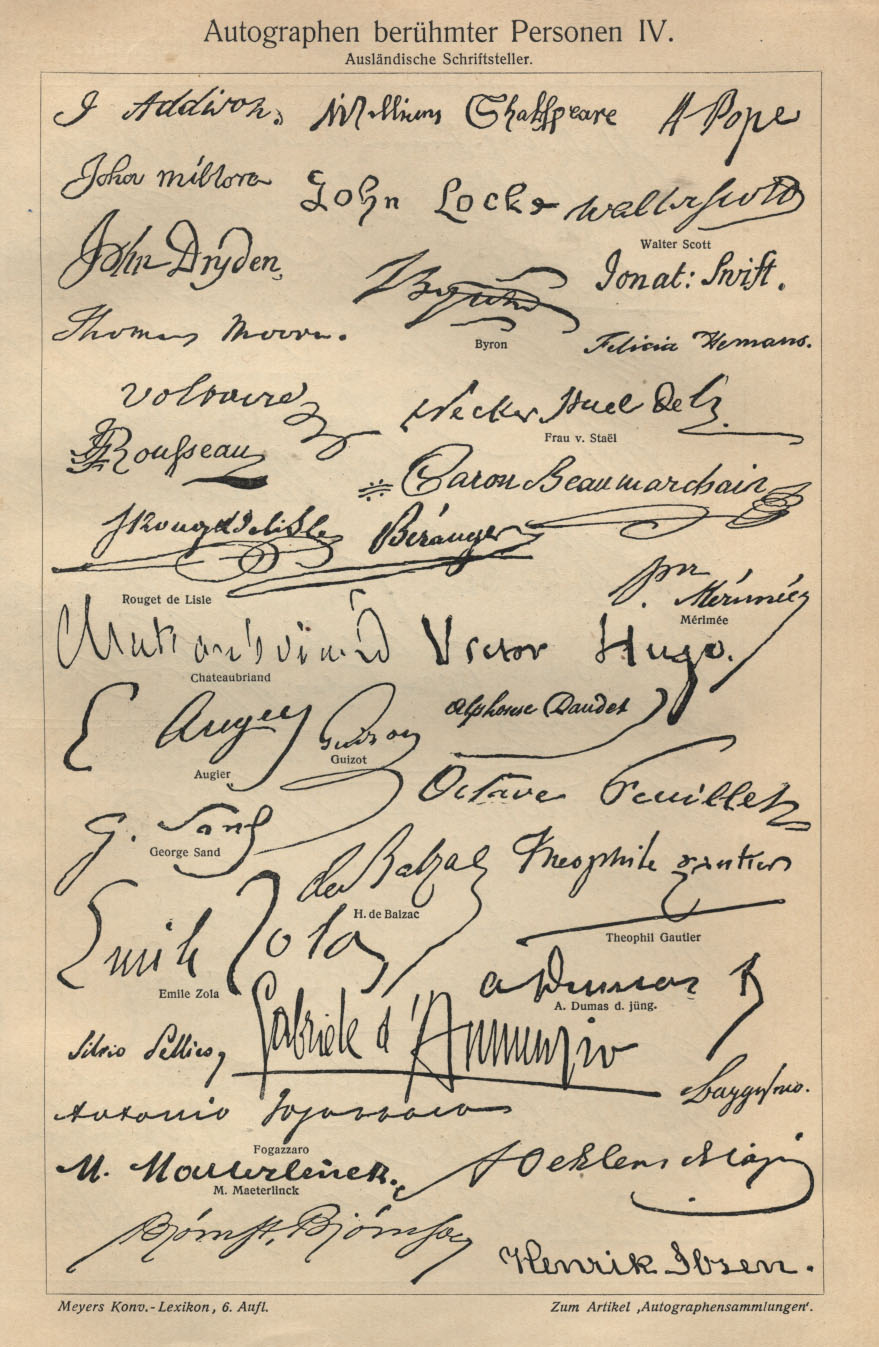 Autographen berühmter Personen IV.
Ausländische Schriftsteller.
J Addison. William Shakspeare A Pope
John Milton John Locke Walter Scott
Walter Scott
John Dryden. Byron Jonat: Swift.
Byron
Thomas Moore. Felicia Hemans.
Voltaire Necker Stael de H.
Frau v. Staël
JJRousseau Caron Beaumarchais
J Rouget de Lisle Béranger
Rouget de Lisle
Pr Mérimée
Mérimée
Chateaubriand Victor Hugo.
Chateaubriand
E Augier Guizot Alphonse Daudet
Augier Guizot
Octave Feuillet
G. Sand
George Sand
de Balzac Theophile Gautier
H. de Balzac Theophil Gautier
Emile Zola
Emile Zola
A Dumas f
A. Dumas d. jüng.
Silvio Pellico, Gabriele d'Annunzio
Baggesen.
Antonio Fogazzaro
Fogazzaro
M. Maeterlinck. A Oehlenschläger
M. Maeterlinck
Björnst. Björnson
Henrik Ibsen.
Meyers Konv.-Lexikon, 6. Aufl. Zum Artikel ‚Autographensammlungen‘.